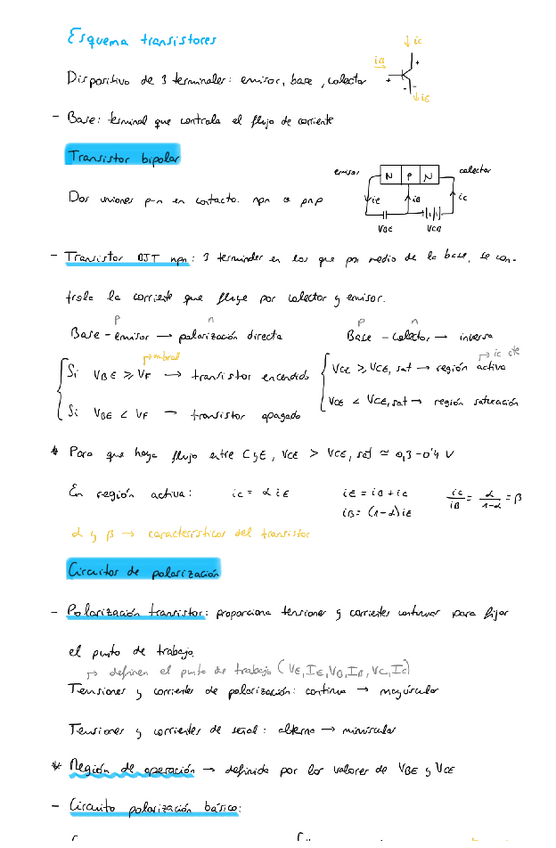 Esquema transistores
ic
iB
Dispositivo de 3 terminales: emisor, base, colector
iE
- Base: terminal que controla el flujo de corriente
Transistor bipolar
emisor N P N colector
Dos uniones p-n en contacto. npn o pnp
iE iB iC
VBE VCB
- Transistor BJT npn: 3 terminales en los que por medio de la base, se con-
trola la corriente que fluye por colector y emisor.
p n p n
Base - emisor → polarización directa Base - colector → inversa
umbral ic cte
Si VBE ≥ VF → transistor encendido VCE ≥ VCE, sat → región activa
Si VBE < VF → transistor apagado VCE < VCE, sat → región saturación
* Para que haya flujo entre C y E, VCE > VCE, sat ≃ 0,3-0'4 V
En región activa: ic = α iE iE = iB + ic ic/iB = α/1-α = β
iB = (1-α) iE
α y β → características del transistor
Circuitos de polarización
- Polarización transistor: proporciona tensiones y corrientes continuas para fijar
el punto de trabajo.
↳ definen el punto de trabajo (VE, IE, VB, IB, VC, IC)
Tensiones y corrientes de polarización: continua → mayúsculas
Tensiones y corrientes de señal: alterna → minúsculas
* Región de operación → definida por los valores de VBE y VCE
- Circuito polarización básico: